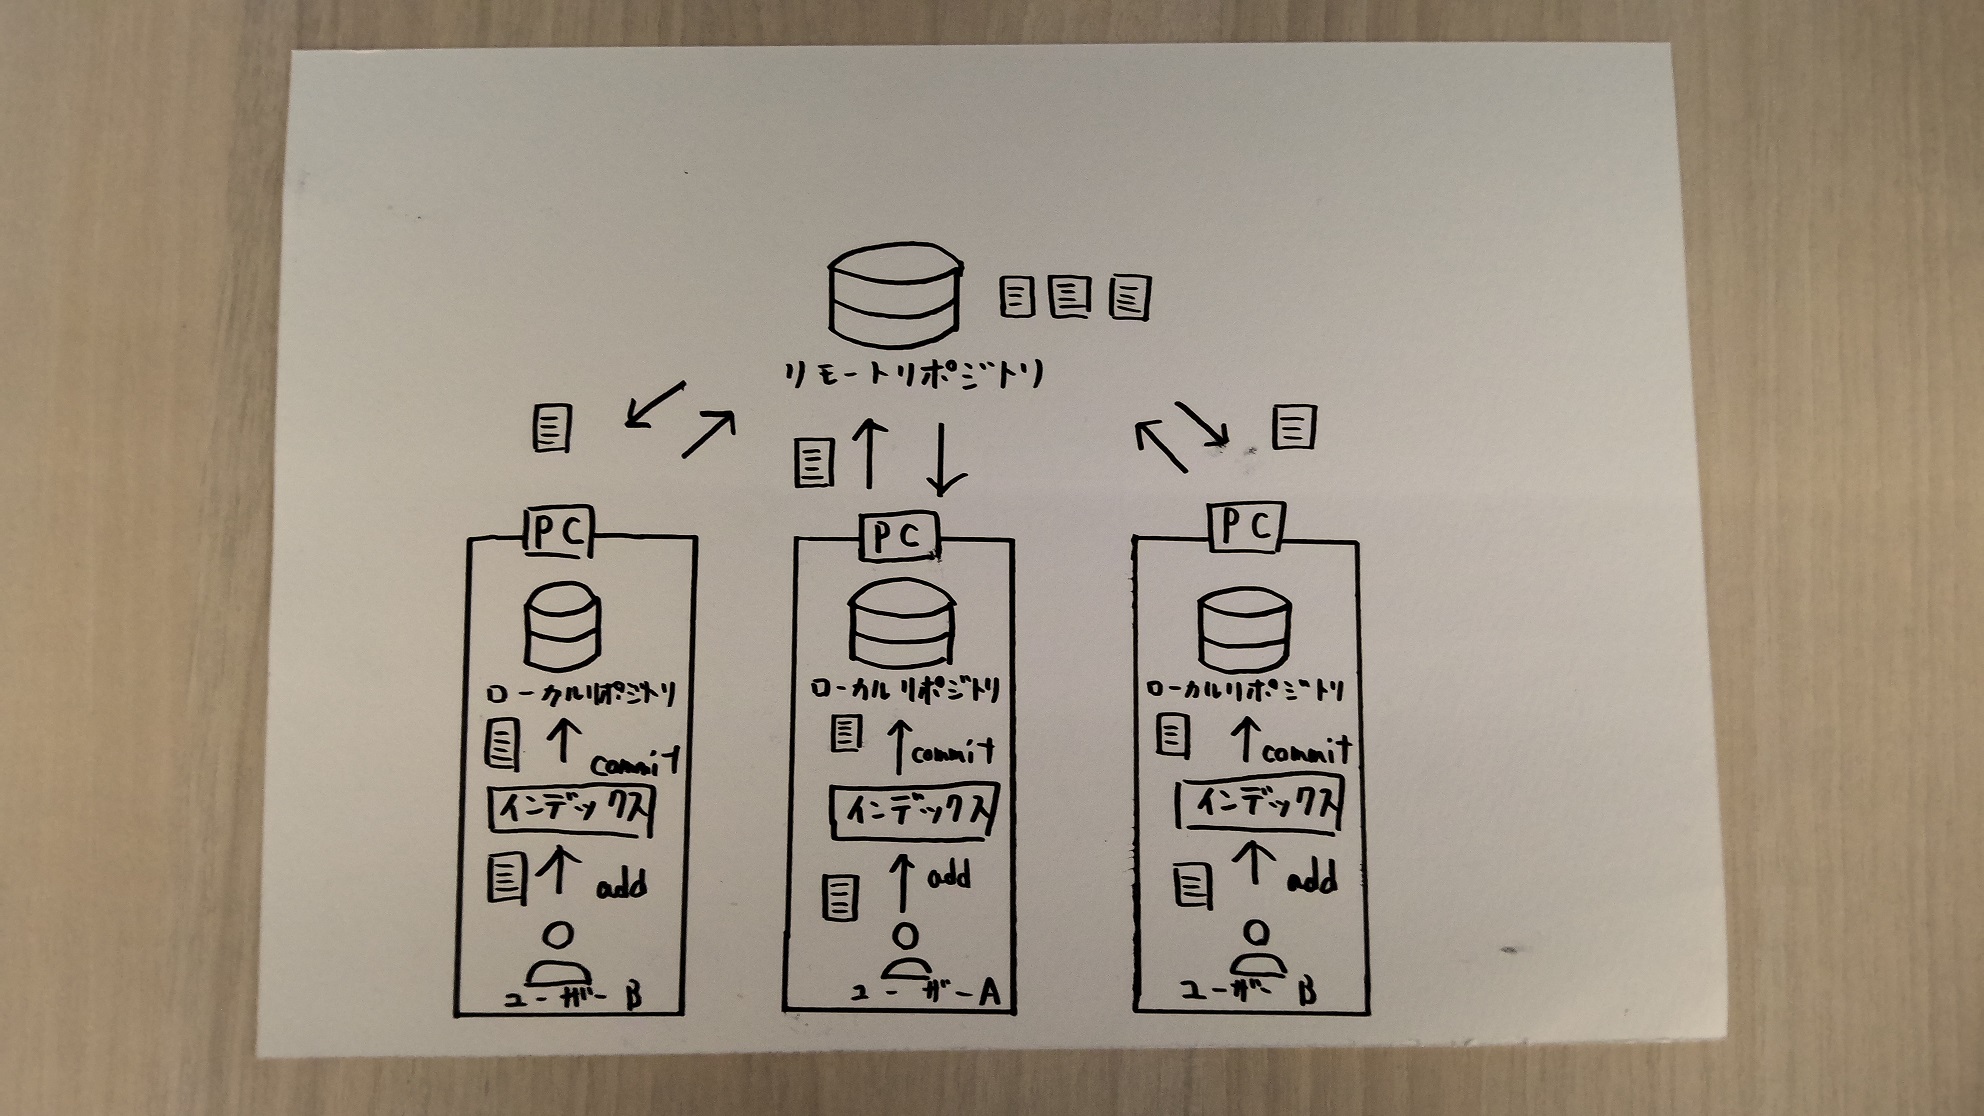 リモートリポジトリ
PC
ローカルリポジトリ
commit
インデックス
add
ユーザー B
PC
ローカルリポジトリ
commit
インデックス
add
ユーザーA
PC
ローカルリポジトリ
commit
インデックス
add
ユーザー B